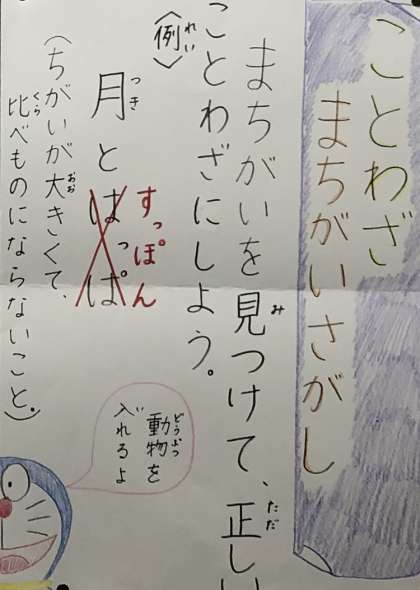 ことわざ
まちがいさがし
まちがいを見つけて、正しい
ことわざにしよう。
〈例〉
月とはっぱ
すっぽん
(ちがいが大きくて、
比べものにならないこと。)
動物を
入れるよ